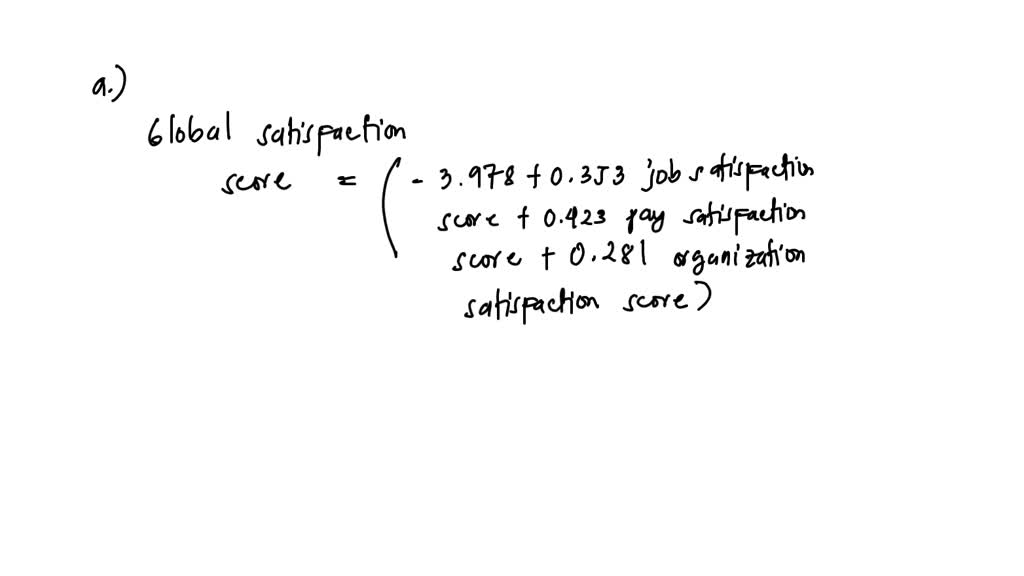 a.)
Global satisfaction
score = (- 3.978 + 0.353 job satisfaction
score + 0.423 pay satisfaction
score + 0.281 organization
satisfaction score)